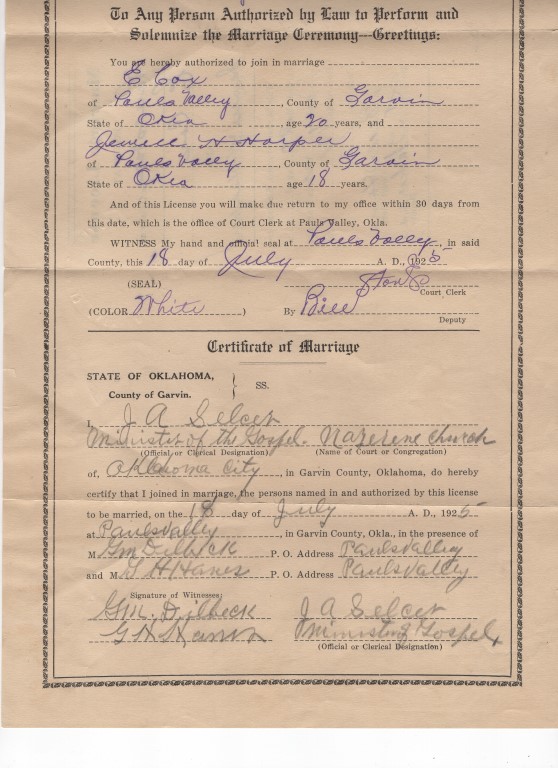 To Any Person Authorized by Law to Perform and
Solemnize the Marriage Ceremony—Greetings:
You are hereby authorized to join in marriage
E Cox
of Pauls Valley, County of Garvin
State of Okla, age 20 years, and
Jewell H Harper
of Pauls Valley, County of Garvin
State of Okla age 18 years.
And of this License you will make due return to my office within 30 days from
this date, which is the office of Court Clerk at Pauls Valley, Okla.
WITNESS My hand and official seal at Pauls Valley, in said
County, this 18 day of July A. D., 1925
(SEAL)
Court Clerk
(COLOR White) By Bill
Deputy
Certificate of Marriage
STATE OF OKLAHOMA,
County of Garvin. } SS.
I, J A Selcer
Minister of the Gospel. Nazerene Church
(Official or Clerical Designation) (Name of Court or Congregation)
of, Oklahoma City, in Garvin County, Oklahoma, do hereby
certify that I joined in marriage, the persons named in and authorized by this license
to be married, on the 18 day of July A. D., 1925
at Pauls Valley, in Garvin County, Okla., in the presence of
M GM Dilbeck P. O. Address Pauls Valley
and M G H Hanes P. O. Address Pauls Valley
Signature of Witnesses:
GM. Dilbeck J A Selcer
G H Hanes Minister of Gospel
(Official or Clerical Designation)